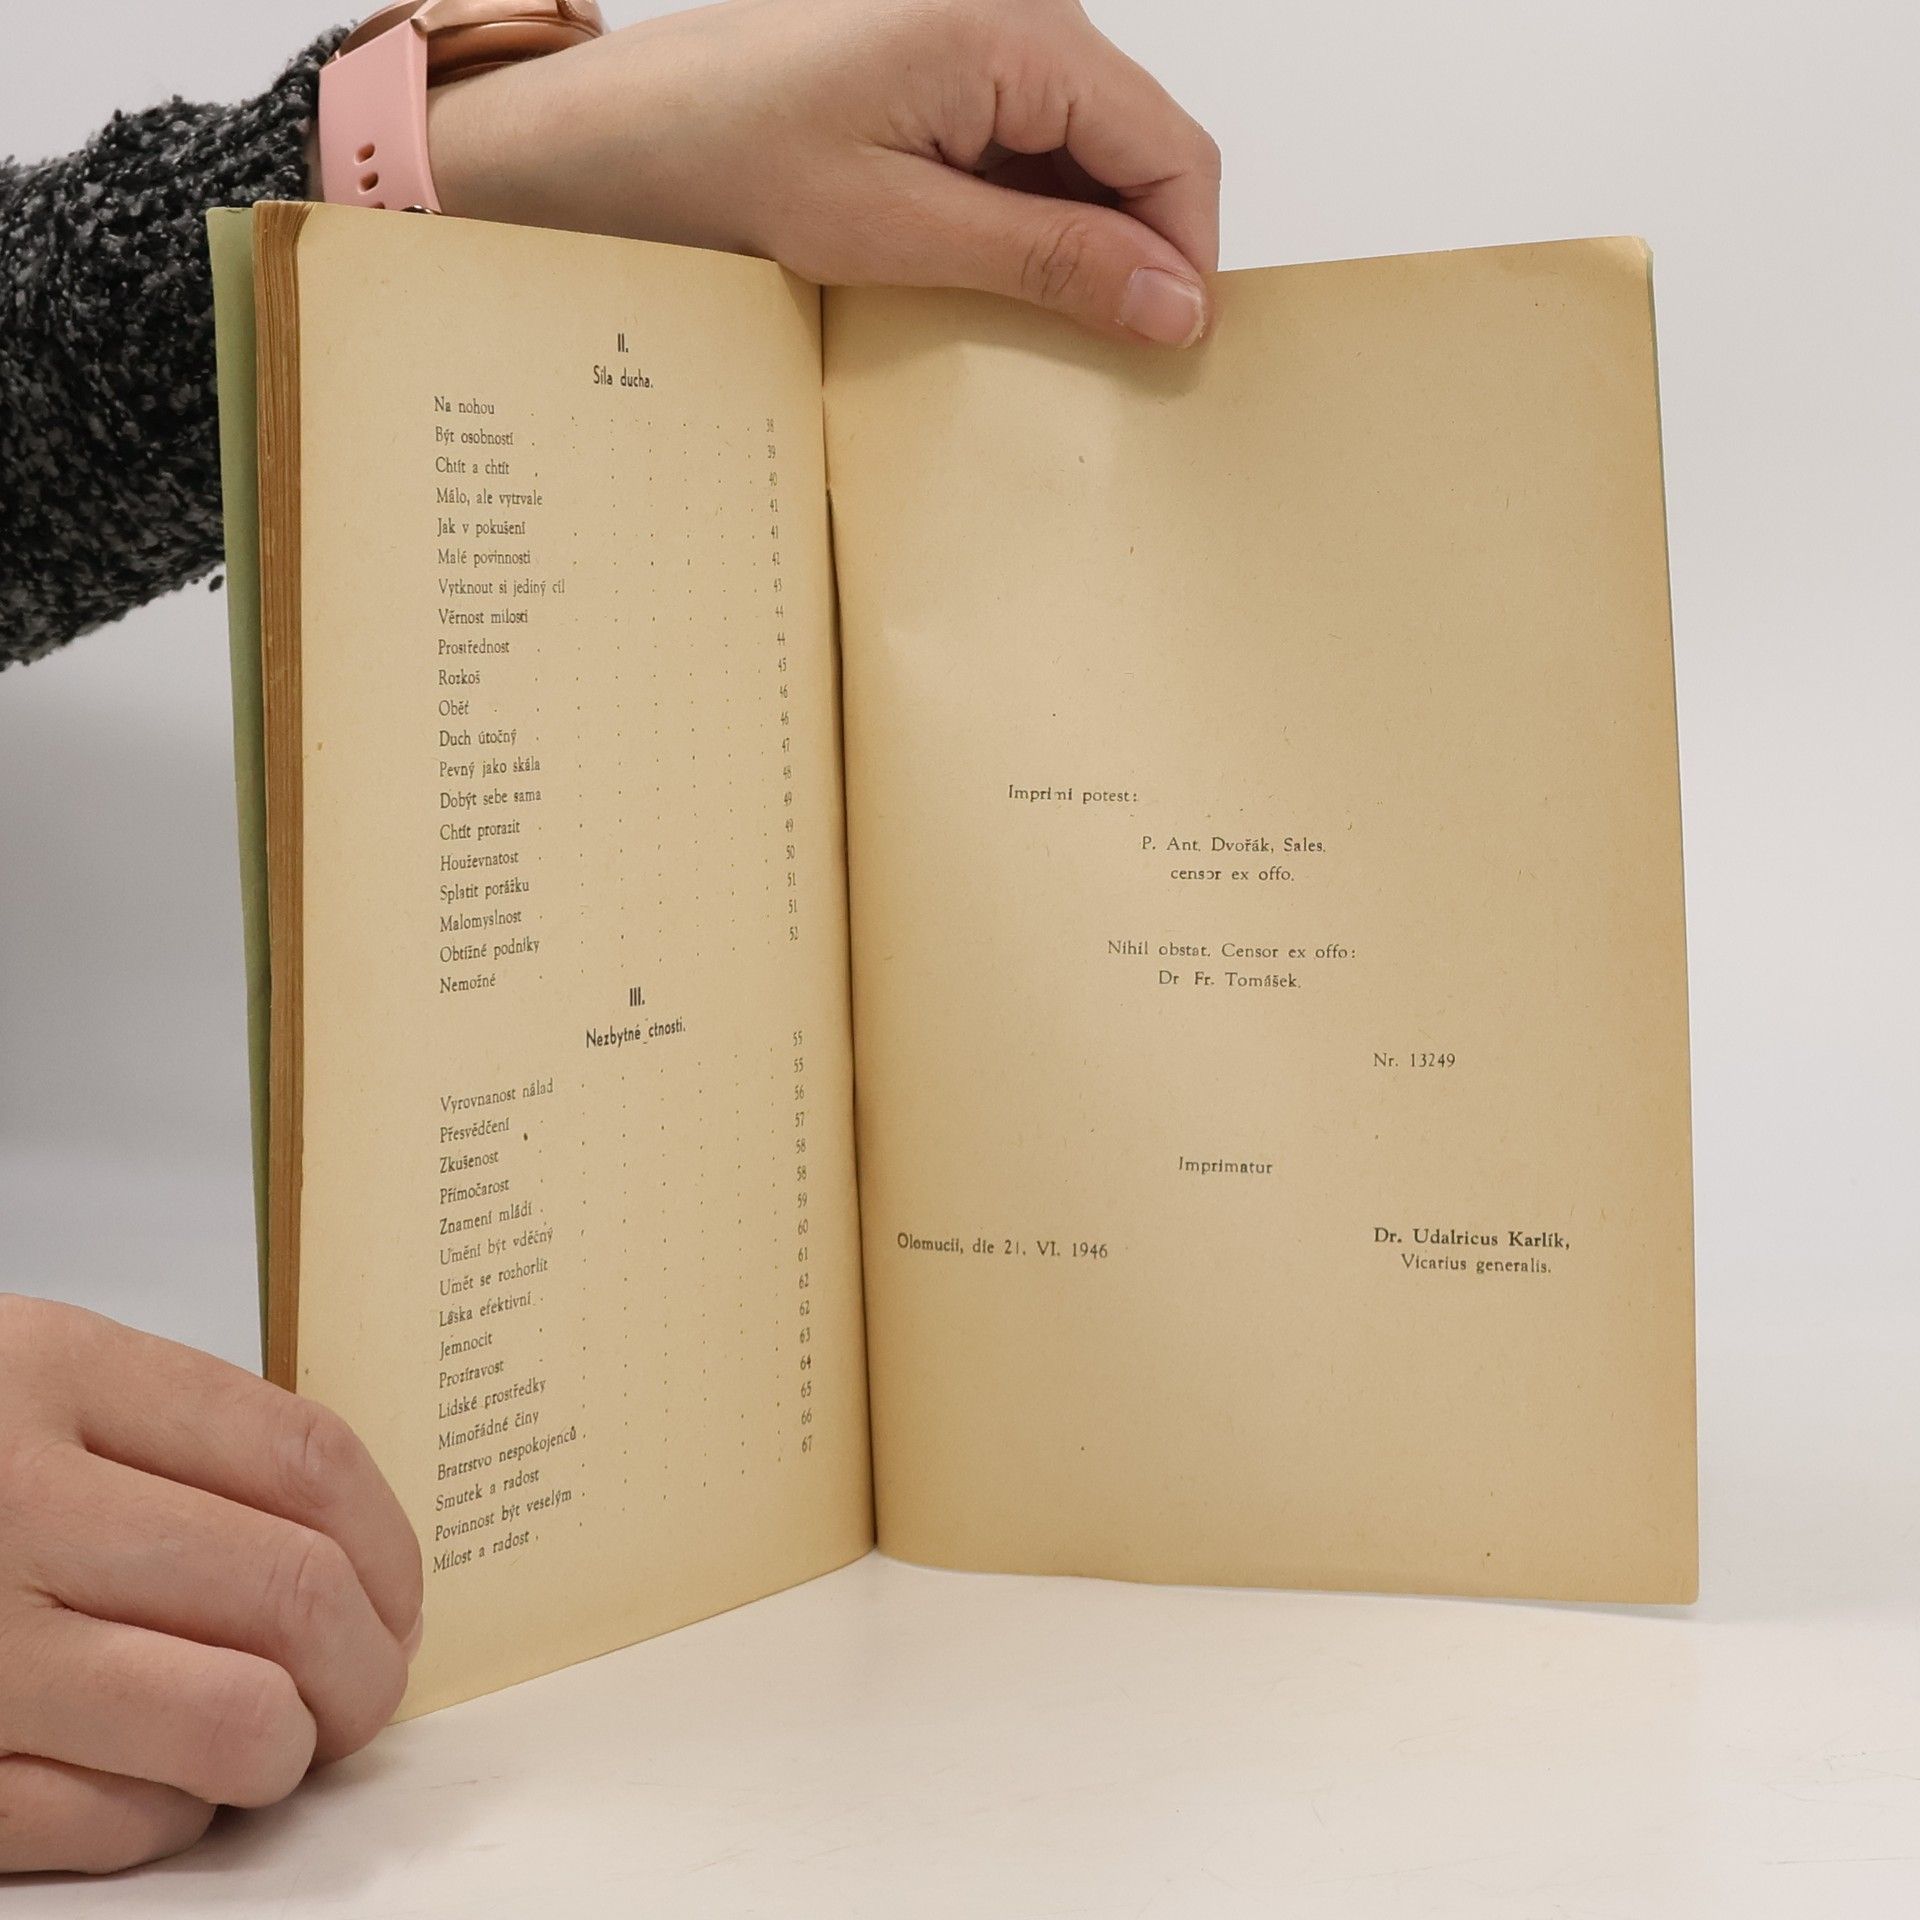 II.
Síla ducha.
Na nohou . . . . . . 38
Být osobností . . . . . . 39
Chtít a chtít . . . . . . 40
Málo, ale vytrvale . . . . . 41
Jak v pokušení . . . . . 41
Malé povinnosti . . . . . 42
Vytknout si jediný cíl . . . . 43
Věrnost milosti . . . . . 44
Prostřednost . . . . . . 44
Rozkoš . . . . . . 45
Oběť . . . . . . . 46
Duch útočný . . . . . . 46
Pevný jako skála . . . . . 47
Dobýt sebe sama . . . . . 48
Chtít prorazit . . . . . . 49
Houževnatost . . . . . . 49
Splatit porážku . . . . . 50
Malomyslnost . . . . . . 51
Obtížné podniky . . . . . 51
Nemožné . . . . . . 52
III.
Nezbytné ctnosti.
Vyrovnanost nálad . . . . . 55
Přesvědčení . . . . . . 55
Zkušenost . . . . . . 56
Přímočarost . . . . . . 57
Znamení mládí . . . . . . 58
Umění být vděčný . . . . . 58
Umět se rozhorlit . . . . . 59
Láska efektivní . . . . . . 60
Jemnocit . . . . . . 61
Prozíravost . . . . . . 62
Lidské prostředky . . . . . 62
Mimořádné činy . . . . . 63
Bratrstvo nespokojenců . . . . . 64
Smutek a radost . . . . . 65
Povinnost být veselým . . . . . 66
Milost a radost . . . . . . 67
Imprimi potest:
P. Ant. Dvořák, Sales.
censor ex offo.
Nihil obstat. Censor ex offo:
Dr Fr. Tomášek.
Nr. 13249
Imprimatur
Olomucii, die 21. VI. 1946
Dr. Udalricus Karlík,
Vicarius generalis.